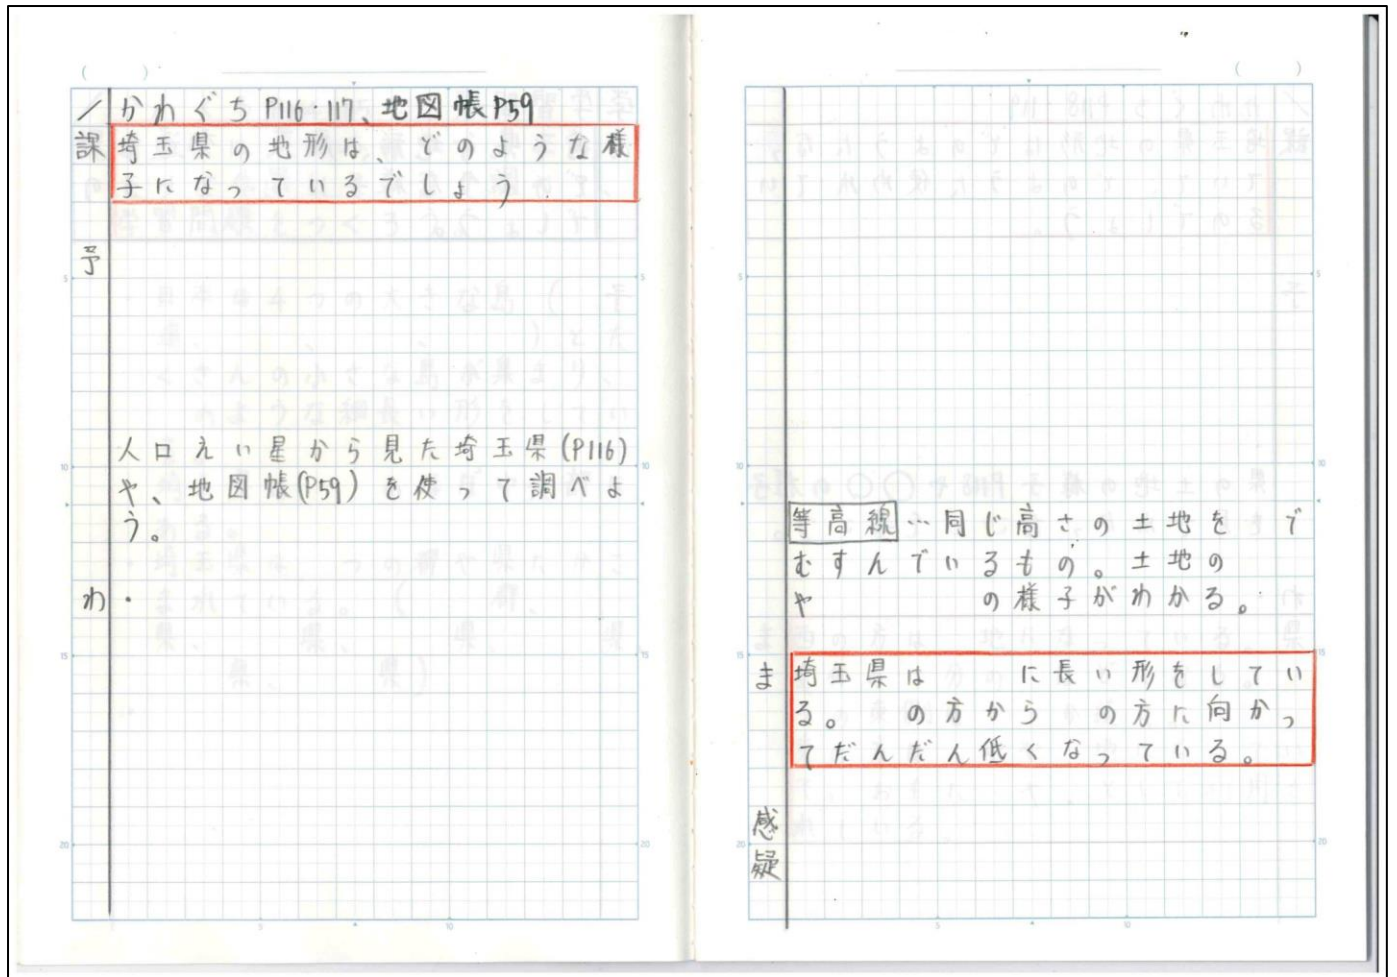 / かわぐち P116・117、地図帳P59
課 埼玉県の地形は、どのような様
子になっているでしょう。
予
人口えい星から見た埼玉県(P116)
や、地図帳(P59)を使って調べよ
う。
わ・
等高線…同じ高さの土地を で
むすんでいるもの。土地の
や の様子がわかる。
ま 埼玉県は に長い形をしてい
る。 の方から の方に向かっ
てだんだん低くなっている。
感
疑